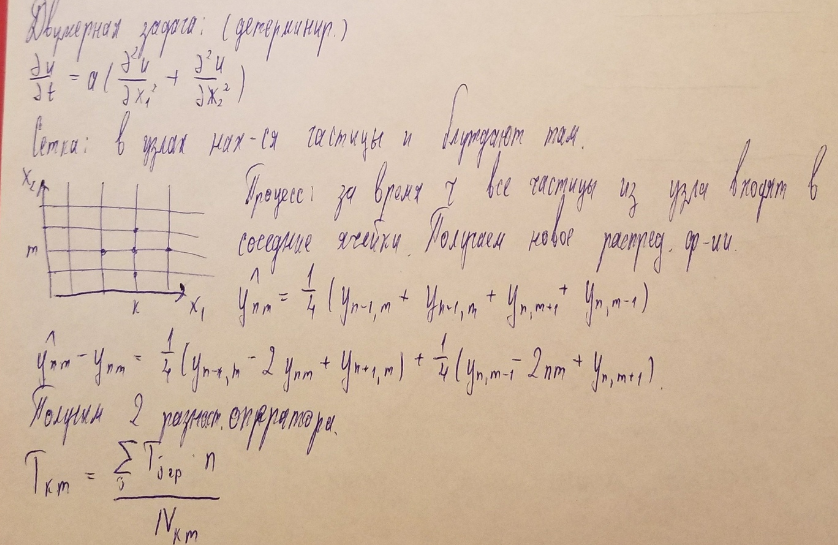 Двумерная задача: (детерминир.)
∂u/∂t = a(∂²u/∂x₁² + ∂²u/∂x₂²)
Сетка: в узлах нах-ся частицы и блуждают там.
x₂
m
k
x₁
Процесс: за время τ все частицы из узла входят в
соседние ячейки. Получаем новое распред. ф-ии.
ŷₙₘ = 1/4 (yₙ₋₁,ₘ + yₙ₊₁,ₘ + yₙ,ₘ₊₁ + yₙ,ₘ₋₁)
ŷₙₘ - yₙₘ = 1/4 (yₙ₋₁,ₘ - 2yₙₘ + yₙ₊₁,ₘ) + 1/4 (yₙ,ₘ₋₁ - 2ₙₘ + yₙ,ₘ₊₁).
Получим 2 разност. оператора.
Tₖₘ = Σ T гр · n / Nₖₘ